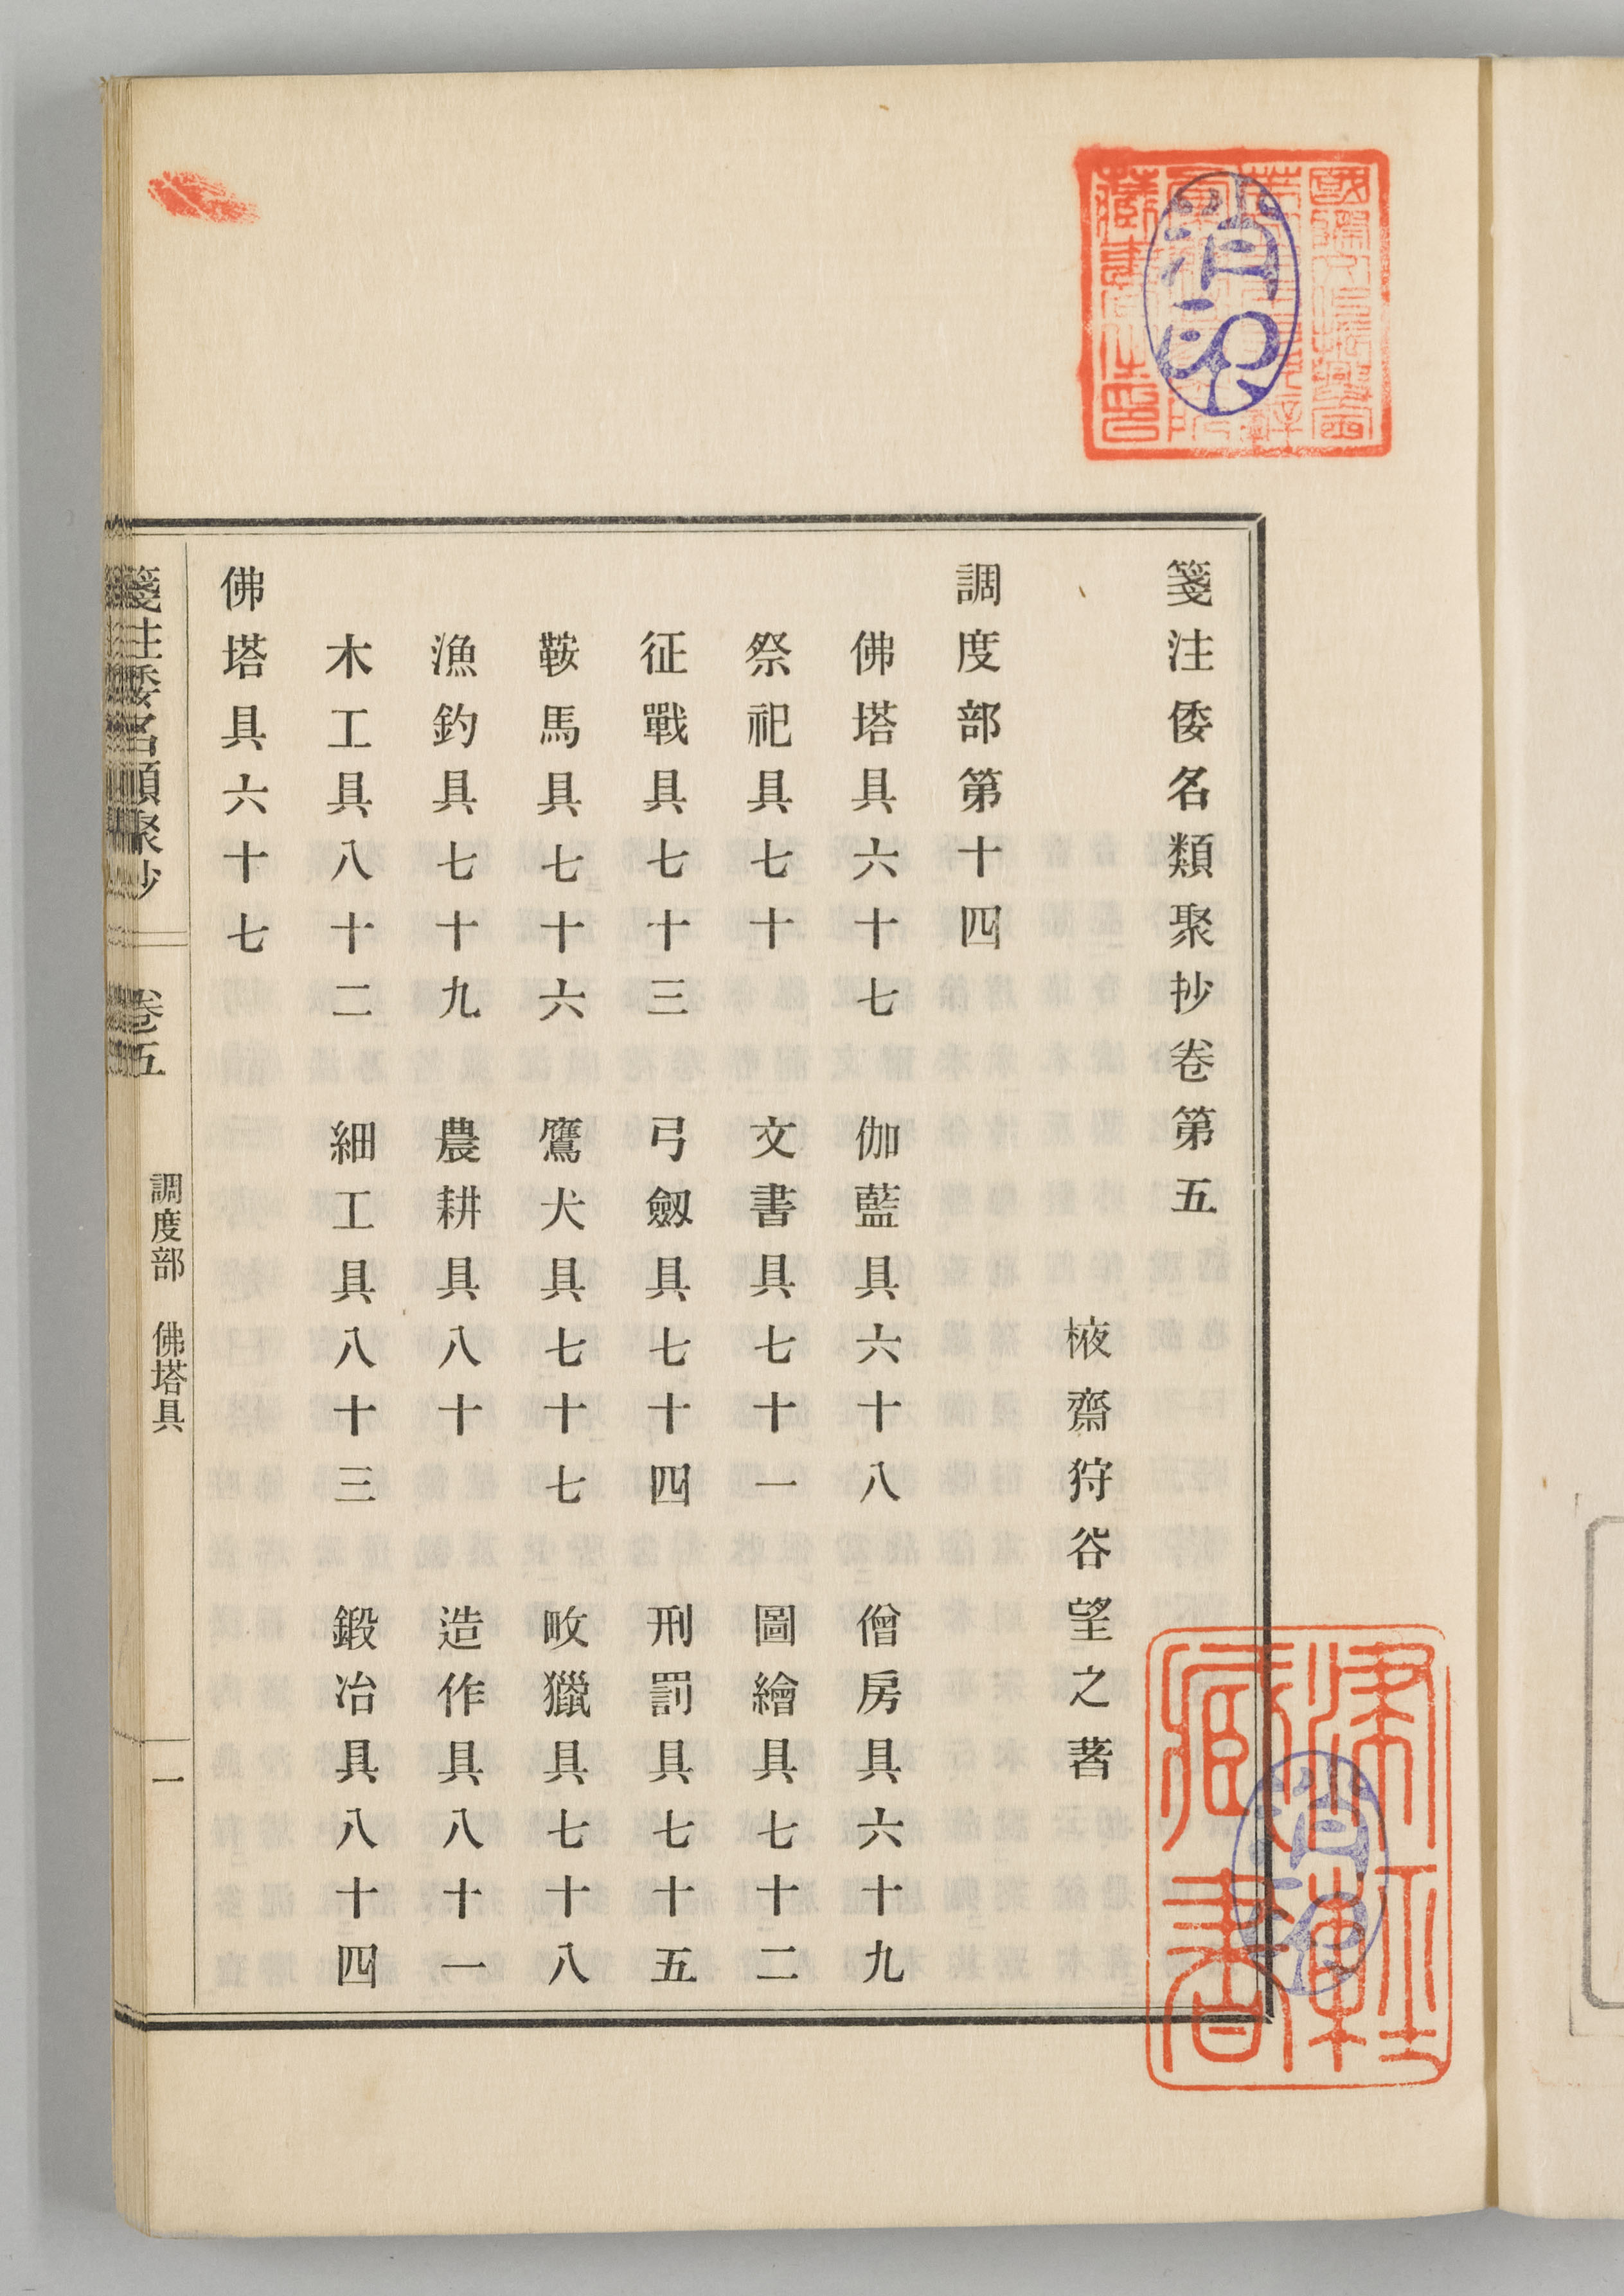 箋注倭名類聚抄卷第五
棭齋狩谷望之著
調度部第十四
佛塔具六十七　伽藍具六十八　僧房具六十九
祭祀具七十　文書具七十一　圖繪具七十二
征戰具七十三　弓劔具七十四　刑罰具七十五
鞍馬具七十六　鷹犬具七十七　畋獵具七十八
漁釣具七十九　農耕具八十　造作具八十一
木工具八十二　細工具八十三　鍛冶具八十四
佛塔具六十七
箋注倭名類聚抄　卷五　調度部　佛塔具　一
消印
消印
藏書